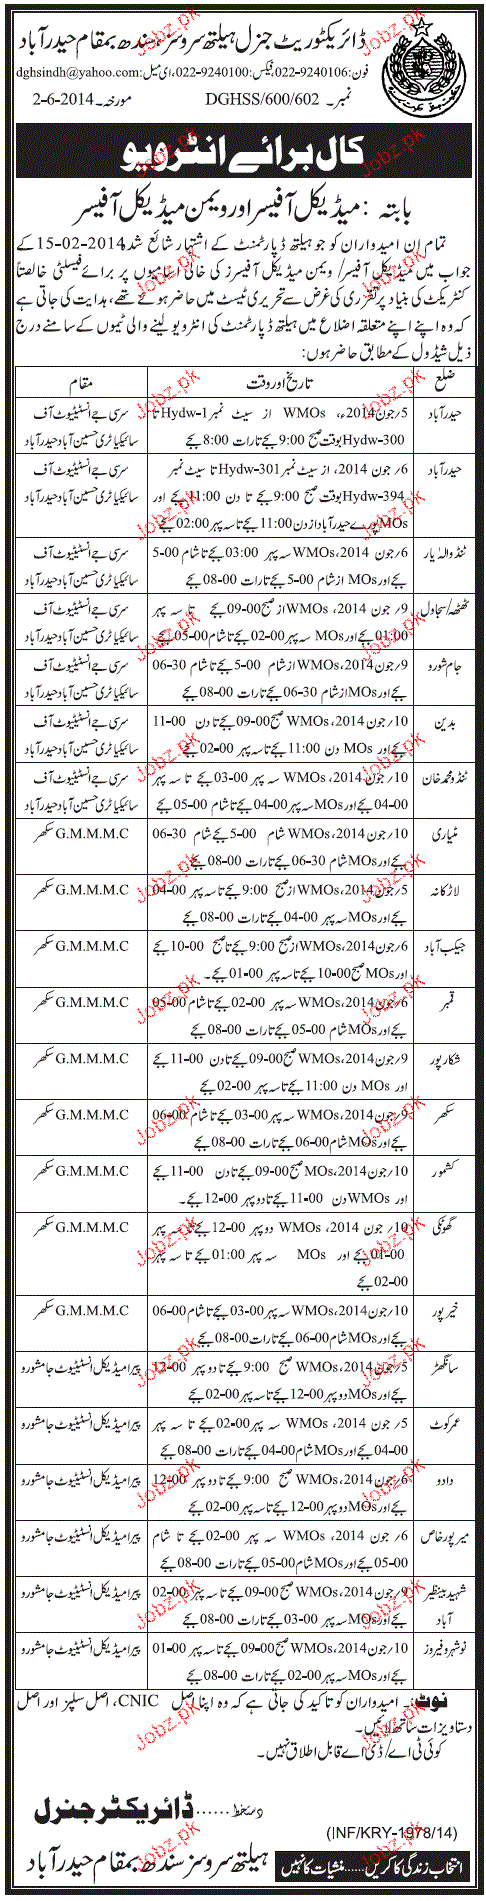 ڈائریکٹوریٹ جنرل ہیلتھ سروسز سندھ بمقام حیدرآباد
فون: 022-9240106، فیکس: 022-9240100، ای میل: dghsindh@yahoo.com
نمبر۔ DGHSS/600/602 مورخہ۔ 2-6-2014
کال برائے انٹرویو
بابتہ : میڈیکل آفیسر اور ویمن میڈیکل آفیسر
تمام ان امیدواران کو جو ہیلتھ ڈپارٹمنٹ کے اشتہار شائع شدہ 15-02-2014 کے
جواب میں میڈیکل آفیسر/ ویمن میڈیکل آفیسرز کی خالی اسامیوں پر برائے فیسلٹی خالصتاً
کنٹریکٹ کی بنیاد پر تقرری کی غرض سے تحریری ٹیسٹ میں حاضر ہوئے تھے، ہدایت کی جاتی ہے
کہ وہ اپنے اپنے متعلقہ اضلاع میں ہیلتھ ڈپارٹمنٹ کی انٹرویو لینے والی ٹیموں کے سامنے درج
ذیل شیڈول کے مطابق حاضر ہوں:
ضلع تاریخ اور وقت مقام
حیدرآباد 5/جون 2014ء، WMOs از سیٹ نمبر Hydw-1 تا سرسی جے انسٹیٹیوٹ آف
Hydw-300 بوقت صبح 9:00 بجے تا رات 8:00 بجے سائیکیاٹری حسین آباد حیدرآباد
حیدرآباد 6/ جون 2014، از سیٹ نمبر Hydw-301 تا سیٹ نمبر سرسی جے انسٹیٹیوٹ آف
Hydw-394 بوقت صبح 9:00 بجے تا دن 11:00 بجے اور سائیکیاٹری حسین آباد حیدرآباد
MOs پورے حیدرآباد از دن 11:00 بجے تا سہ پہر 02:00 بجے
ٹنڈوالہ یار 6/ جون 2014، WMOs سہ پہر 03:00 بجے تا شام 5-00 سرسی جے انسٹیٹیوٹ آف
بجے اور MOs از شام 5-00 بجے تا رات 08-00 بجے سائیکیاٹری حسین آباد حیدرآباد
ٹھٹھہ/سجاول 9/ جون 2014، WMOs از صبح 09-00 بجے تا سہ پہر سرسی جے انسٹیٹیوٹ آف
01:00 بجے اور MOs سہ پہر 02-00 بجے تا شام 05-00 بجے سائیکیاٹری حسین آباد حیدرآباد
جام شورو 9/جون 2014، WMOs از شام 5-00 بجے تا شام 06-30 سرسی جے انسٹیٹیوٹ آف
بجے اور MOs از شام 06-30 بجے تا رات 08-00 بجے سائیکیاٹری حسین آباد حیدرآباد
بدین 10/جون 2014، WMOs صبح 09-00 بجے تا دن 11-00 سرسی جے انسٹیٹیوٹ آف
بجے اور MOs دن 11:00 بجے تا سہ پہر 02-00 بجے سائیکیاٹری حسین آباد حیدرآباد
ٹنڈو محمد خان 10/ جون 2014، WMOs سہ پہر 03-00 بجے تا سہ پہر سرسی جے انسٹیٹیوٹ آف
04-00 بجے اور MOs سہ پہر 04-00 بجے تا شام 05-00 بجے سائیکیاٹری حسین آباد حیدرآباد
مٹیاری 10/ جون 2014، WMOs شام 5-00 بجے شام 06-30 G.M.M.M.C سکھر
بجے اور MOs شام 06-30 بجے تا رات 08-00 بجے
لاڑکانہ 5/ جون 2014، WMOs از صبح 9:00 بجے تا سہ پہر 04-00 G.M.M.M.C سکھر
بجے اور MOs سہ پہر 04-00 بجے تا رات 08-00 بجے
جیکب آباد 6/جون 2014، WMOs از صبح 9:00 بجے تا صبح 10-00 بجے G.M.M.M.C سکھر
اور MOs صبح 10-00 بجے تا سہ پہر 01-00 بجے۔
قمبر 6/جون 2014، WMOs سہ پہر 02-00 بجے تا شام 05-00 G.M.M.M.C سکھر
بجے اور MOs شام 05-00 بجے تا رات 08-00 بجے
شکارپور 9/ جون 2014، WMOs صبح 09-00 بجے تا دن 11-00 بجے G.M.M.M.C سکھر
اور MOs دن 11:00 بجے تا سہ پہر 02-00 بجے
سکھر 9/جون 2014، WMOs سہ پہر 03-00 بجے تا شام 06-00 G.M.M.M.C سکھر
بجے اور MOs شام 06-00 بجے تا رات 08-00 بجے
کشمور 10/ جون 2014، MOs صبح 09-00 بجے تا دن 11-00 بجے G.M.M.M.C سکھر
اور WMOs دن 11-00 بجے تا دوپہر 12-00 بجے۔
گھوٹکی 10/ جون 2014، WMOs دوپہر 12-00 بجے تا سہ پہر G.M.M.M.C سکھر
01-00 بجے اور MOs سہ پہر 01:00 بجے تا سہ پہر
02-00 بجے
خیرپور 10/جون 2014، WMOs سہ پہر 03-00 بجے تا شام 06-00 G.M.M.M.C سکھر
بجے اور MOs شام 06-00 بجے تا رات 08-00 بجے
سانگھڑ 5/جون 2014، WMOs صبح 9:00 بجے تا دوپہر 12-00 پیرا میڈیکل انسٹیٹیوٹ جامشورو
بجے اور MOs دوپہر 12-00 بجے تا سہ پہر 02-00 بجے
عمرکوٹ 5/ جون 2014، WMOs سہ پہر 02-00 بجے تا سہ پہر پیرا میڈیکل انسٹیٹیوٹ جامشورو
04-00 بجے اور MOs شام 04-00 بجے تا رات 08-00 بجے
دادو 6/جون 2014، WMOs صبح 9:00 بجے تا دوپہر 12-00 پیرا میڈیکل انسٹیٹیوٹ جامشورو
بجے اور MOs دوپہر 12-00 بجے تا سہ پہر 02-00 بجے
میرپورخاص 6/ جون 2014، WMOs سہ پہر 02-00 بجے تا شام پیرا میڈیکل انسٹیٹیوٹ جامشورو
05-00 بجے اور MOs شام 05-00 بجے تا رات 08-00 بجے
شہید بینظیر 9/جون 2014، WMOs صبح 09-00 بجے تا سہ پہر 02-00 پیرا میڈیکل انسٹیٹیوٹ جامشورو
آباد بجے اور MOs سہ پہر 03-00 بجے تا رات 08-00 بجے
نوشہروفیروز 10/ جون 2014، WMOs صبح 09-00 بجے تا سہ پہر 01-00 پیرا میڈیکل انسٹیٹیوٹ جامشورو
بجے اور MOs سہ پہر 02-00 بجے تا رات 08-00 بجے
نوٹ:۔ امیدواران کو تاکید کی جاتی ہے کہ وہ اپنا اصل CNIC، اصل سلپز اور اصل
دستاویزات ساتھ لائیں۔
کوئی ٹی اے/ ڈی اے قابل اطلاق نہیں۔
دستخط...... ڈائریکٹر جنرل
(INF/KRY-1978/14)
ہیلتھ سروسز سندھ بمقام حیدرآباد
انتخاب زندگی کا کریں...... منشیات کا نہیں
Jobz.pk